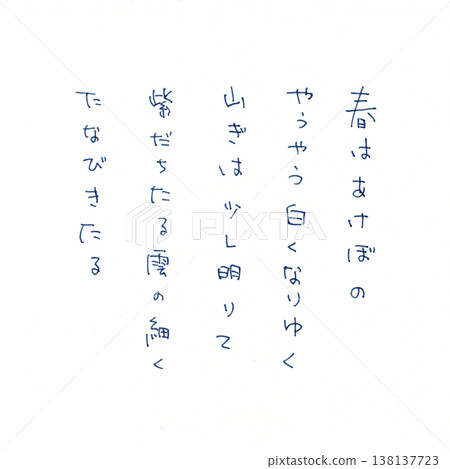 春はあけぼの
やうやう白くなりゆく
山ぎは少し明りて
紫だちたる雲の細く
たなびきたる
PIXTA
138137723